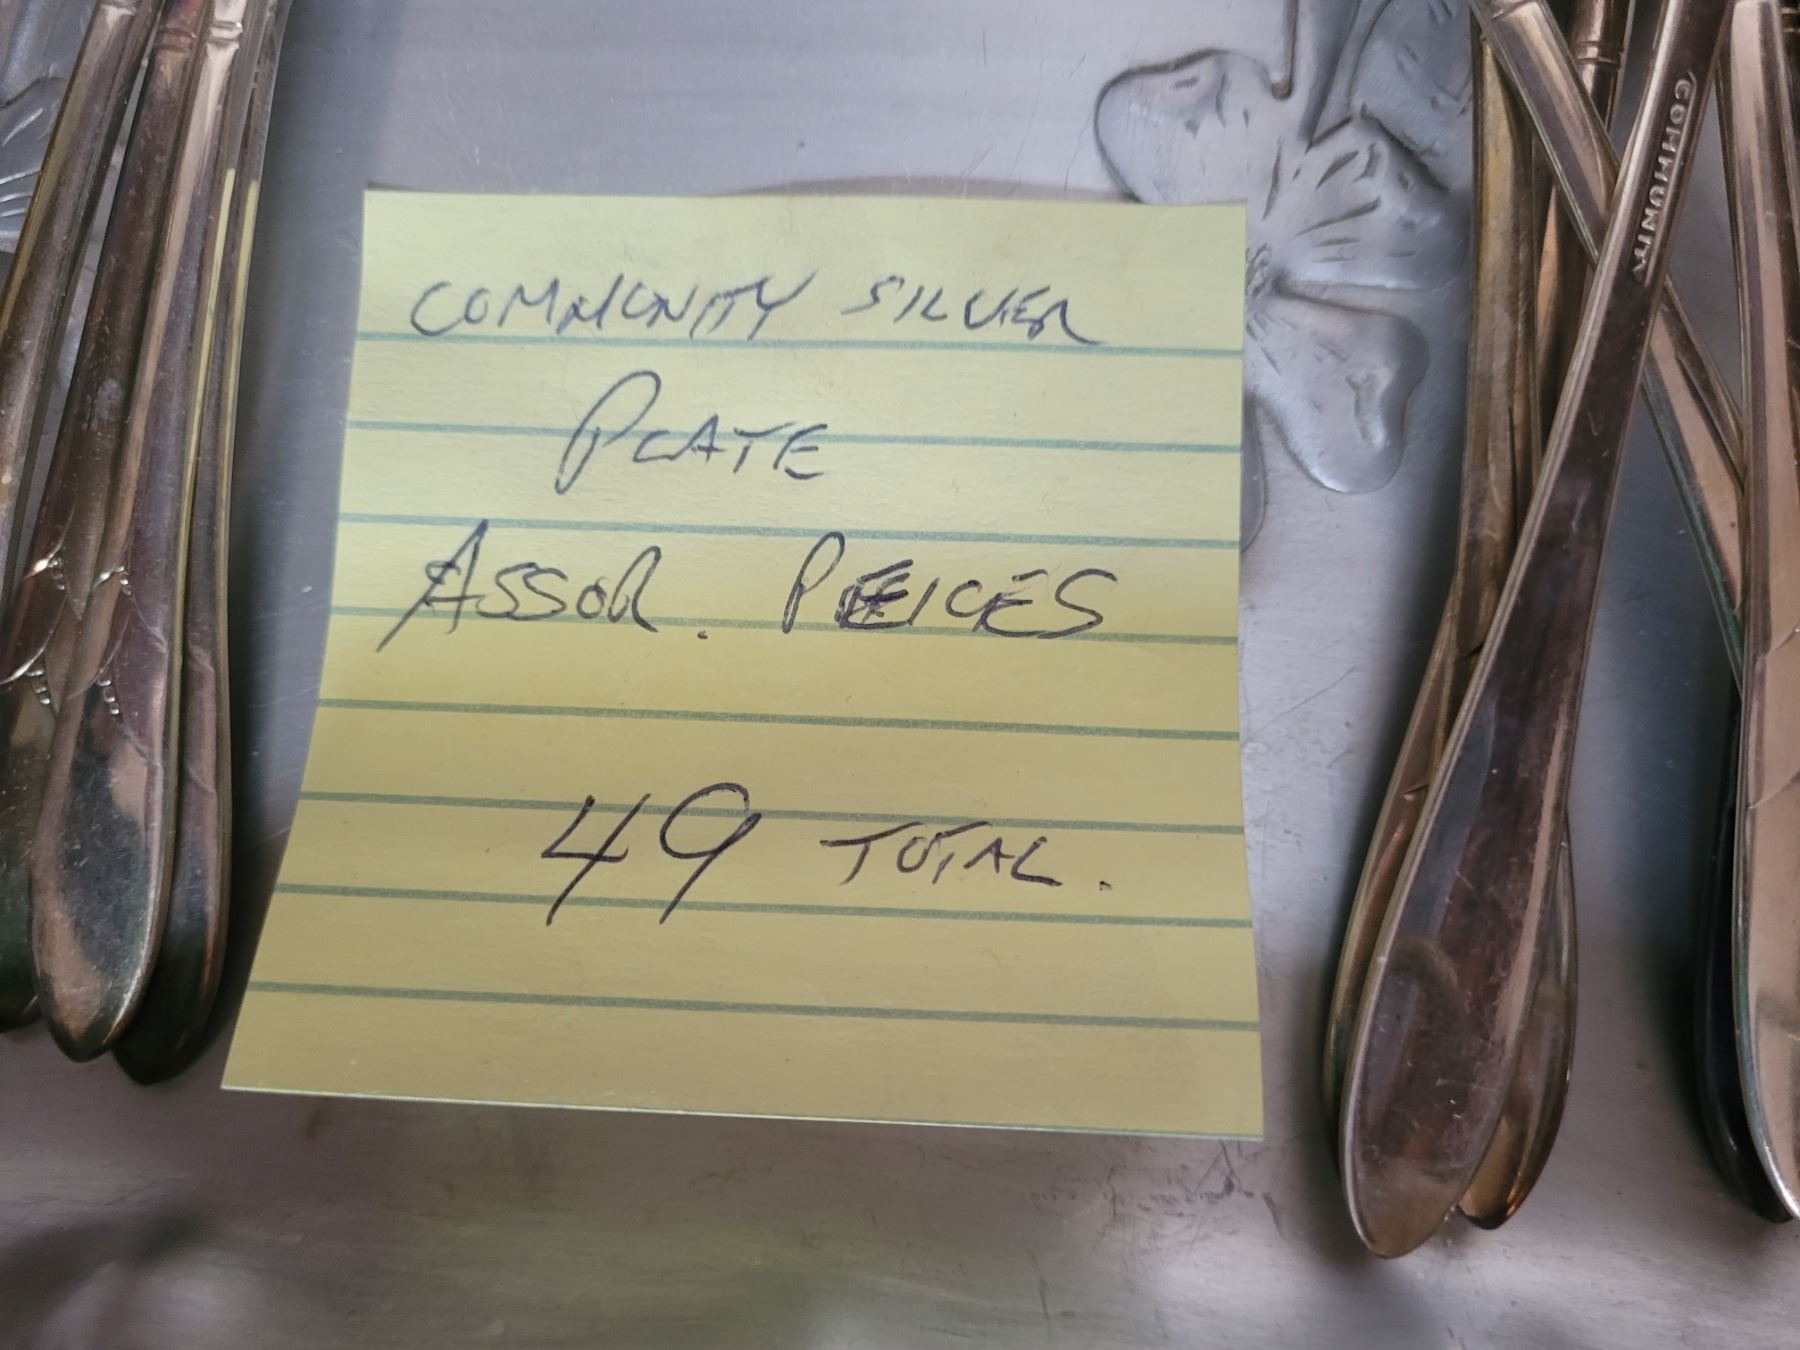 COMMUNITY SILVER
PLATE
ASSOR. PEICES
49 TOTAL.
COMMUNITY